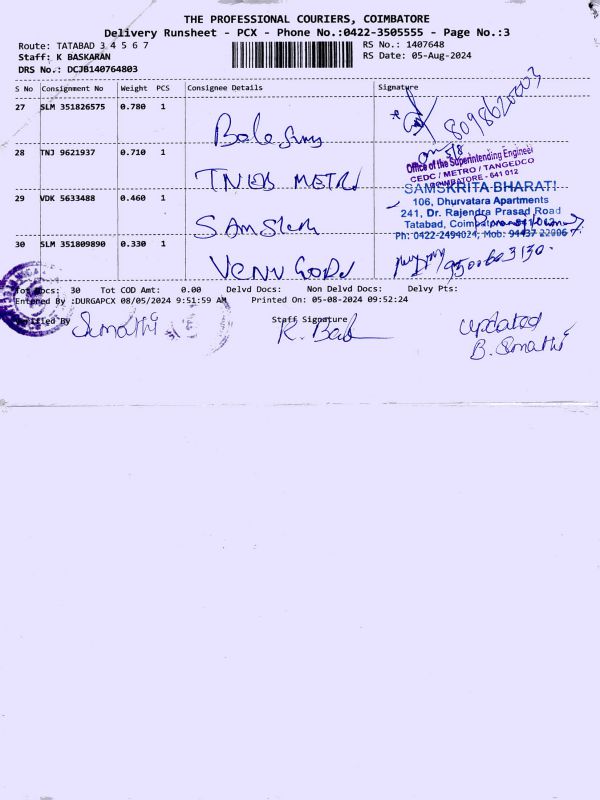 THE PROFESSIONAL COURIERS, COIMBATORE
Delivery Runsheet - PCX - Phone No.:0422-3505555 - Page No.:3
Route: TATABAD 3 4 5 6 7
RS No.: 1407648
Staff: K BASKARAN
RS Date: 05-Aug-2024
DRS No.: DCJB140764803
S No Consignment No Weight PCS Consignee Details Signature
27 SLM 351826575 0.780 1
8098620003
28 TNJ 9621937 0.710 1 TNEB METRO
Office of the Superintending Engineer
CEDC / METRO / TANGEDCO
COIMBATORE - 641 012
29 VDK 5633488 0.460 1
SAMSKRITA BHARATI
106, Dhurvatara Apartments
241, Dr. Rajendra Prasad Road
Tatabad,
Ph: 0422-2494024, Mob: 94437 22006
30 SLM 351809890 0.330 1
9500603130
Tot Docs: 30 Tot COD Amt: 0.00 Delvd Docs: Non Delvd Docs: Delvy Pts:
Entered By :DURGAPCX 08/05/2024 9:51:59 AM Printed On: 05-08-2024 09:52:24
Verified By Sumathi Staff Signature
updated
B. Sumathi